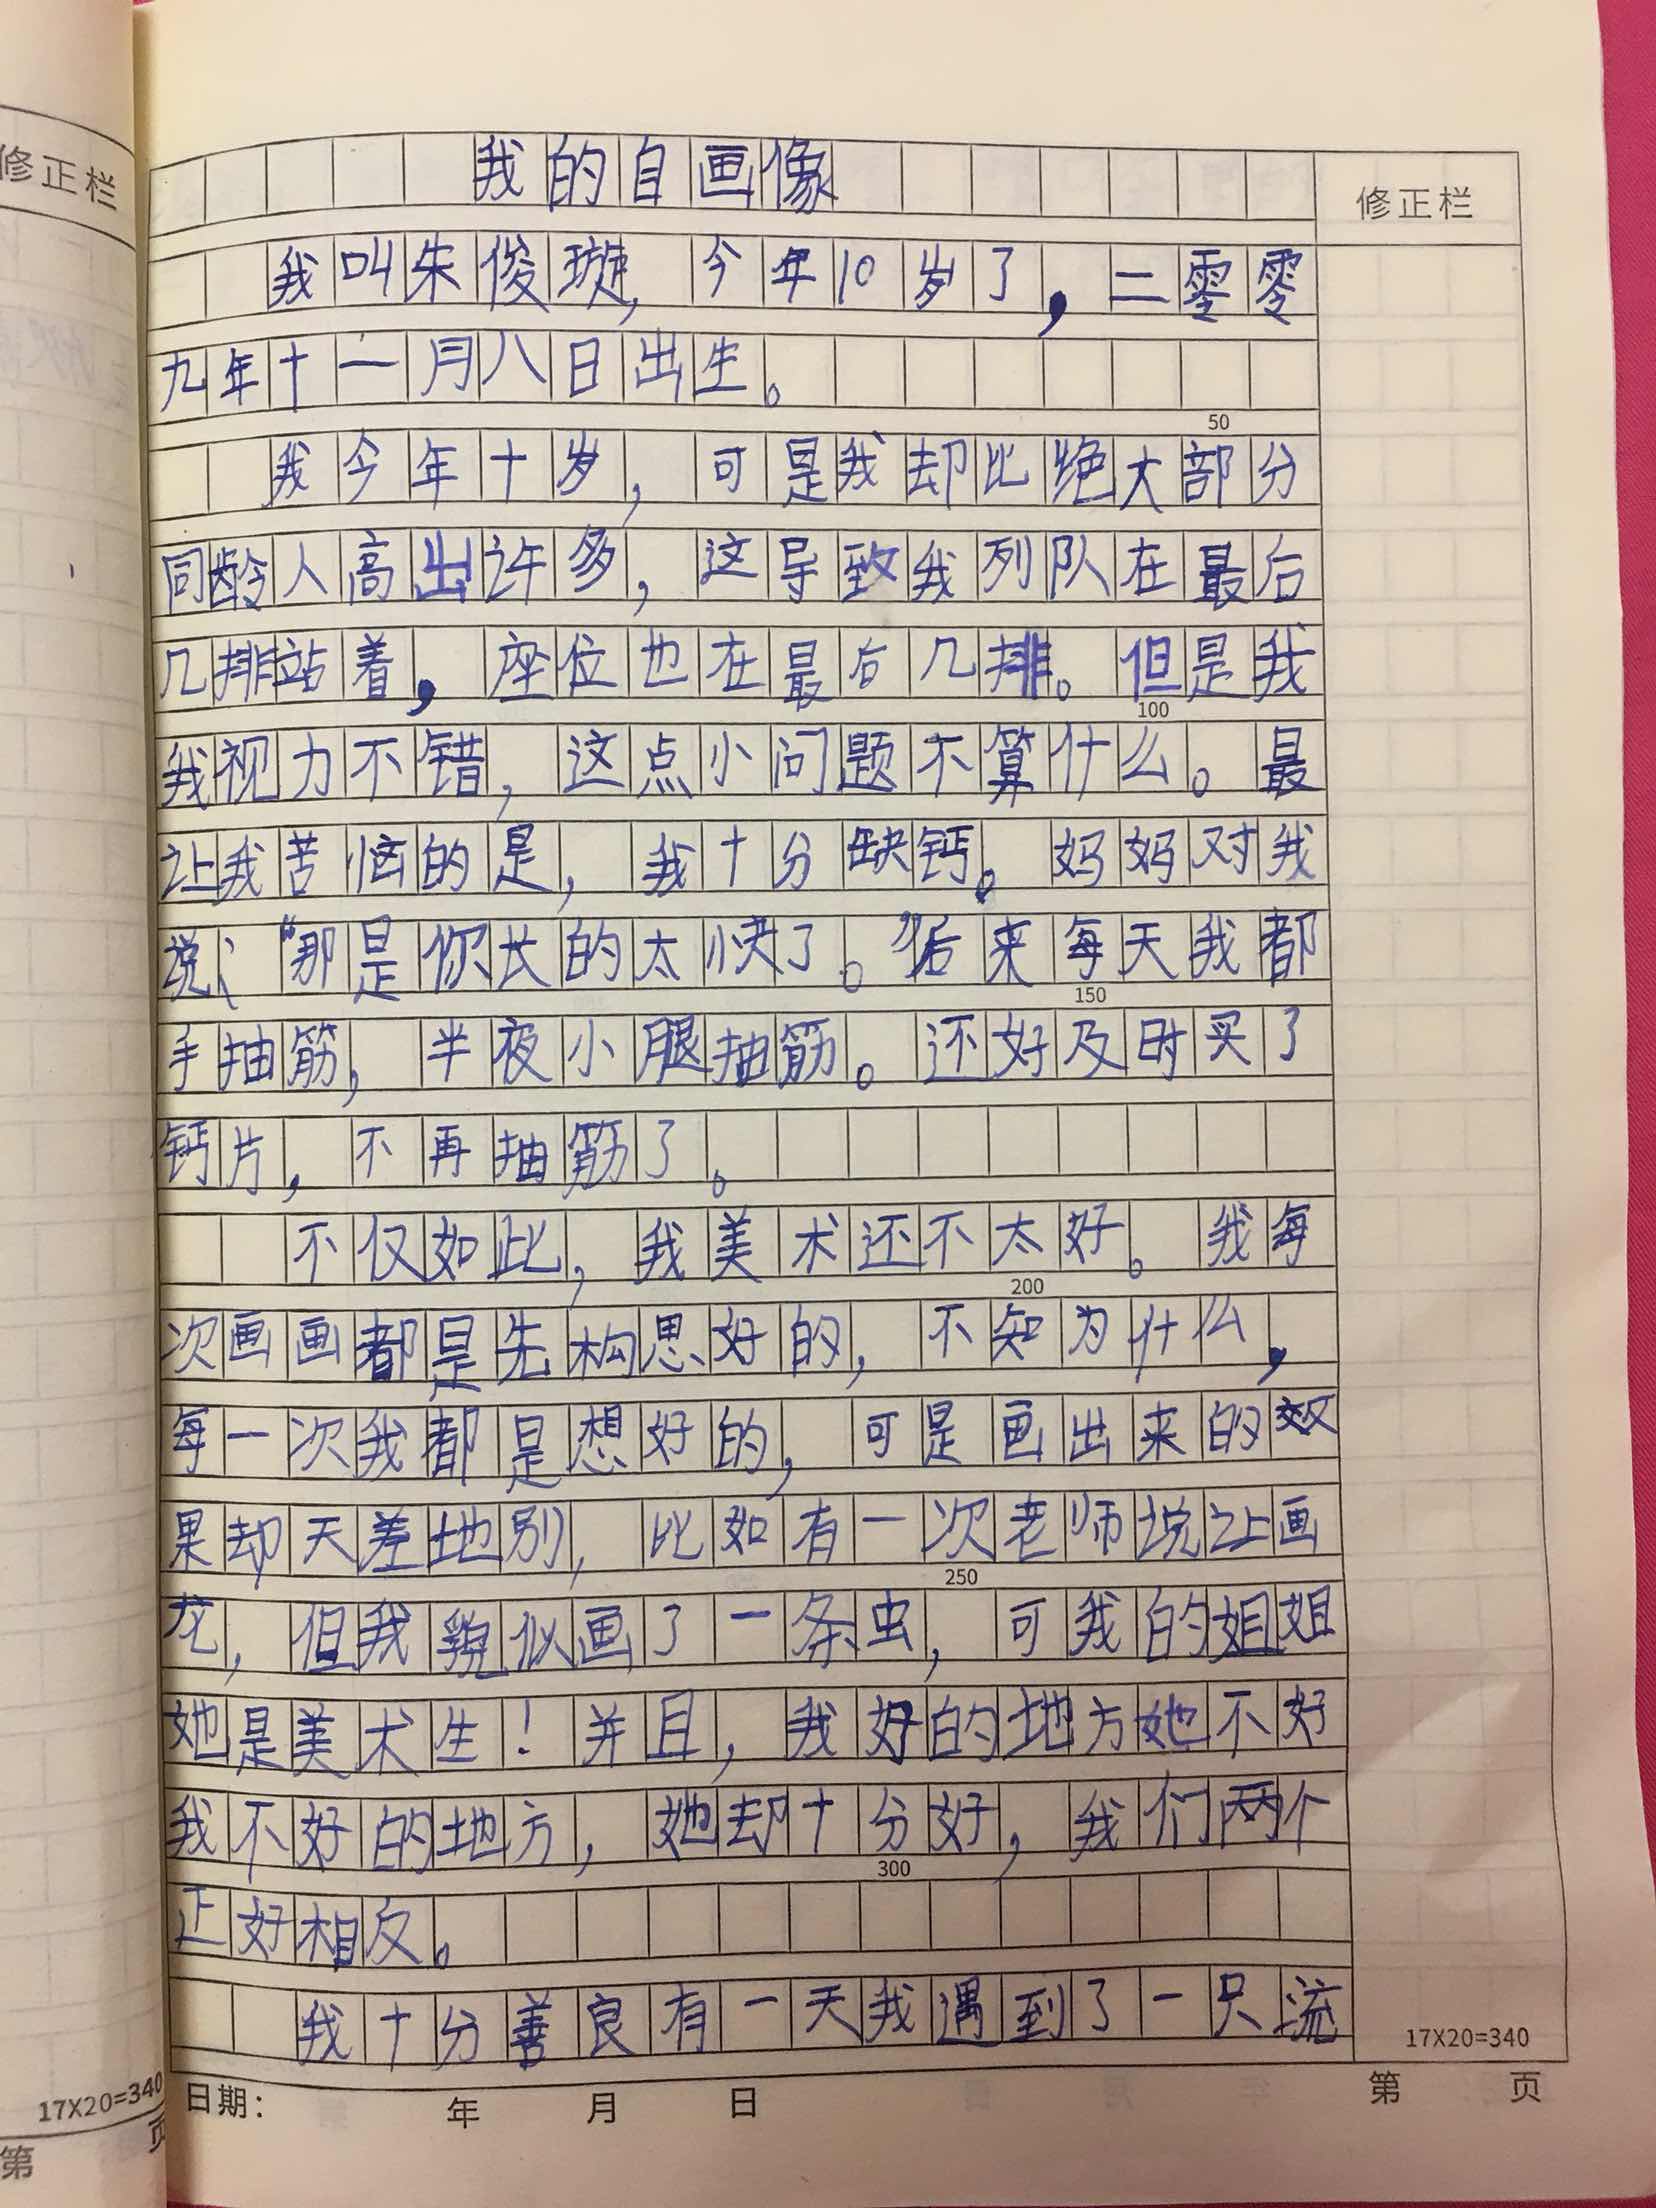 修正栏
我的自画像
修正栏
我叫朱俊璇,今年10岁了,二零零
九年十一月八日出生。
50
我今年十岁,可是我却比绝大部分
同龄人高出许多,这导致我列队在最后
几排站着,座位也在最后几排。但是我
100
我视力不错,这点小问题不算什么。最
让我苦恼的是,我十分缺钙。妈妈对我
说、“那是你长的太快了。”后来每天我都
150
手抽筋,半夜小腿抽筋。还好及时买了
钙片,不再抽筋了。
不仅如此,我美术还不太好。我每
200
次画画都是先构思好的,不知为什么,
每一次我都是想好的,可是画出来的效
果却天差地别,比如有一次老师说让画
250
龙,但我貌似画了一条虫,可我的姐姐
她是美术生!并且,我好的地方她不好
我不好的地方,她却十分好,我们两个
300
正好相反。
我十分善良有一天我遇到了一只流
17X20=340
日期: 年 月 日
第 页
17X20=340
第 页